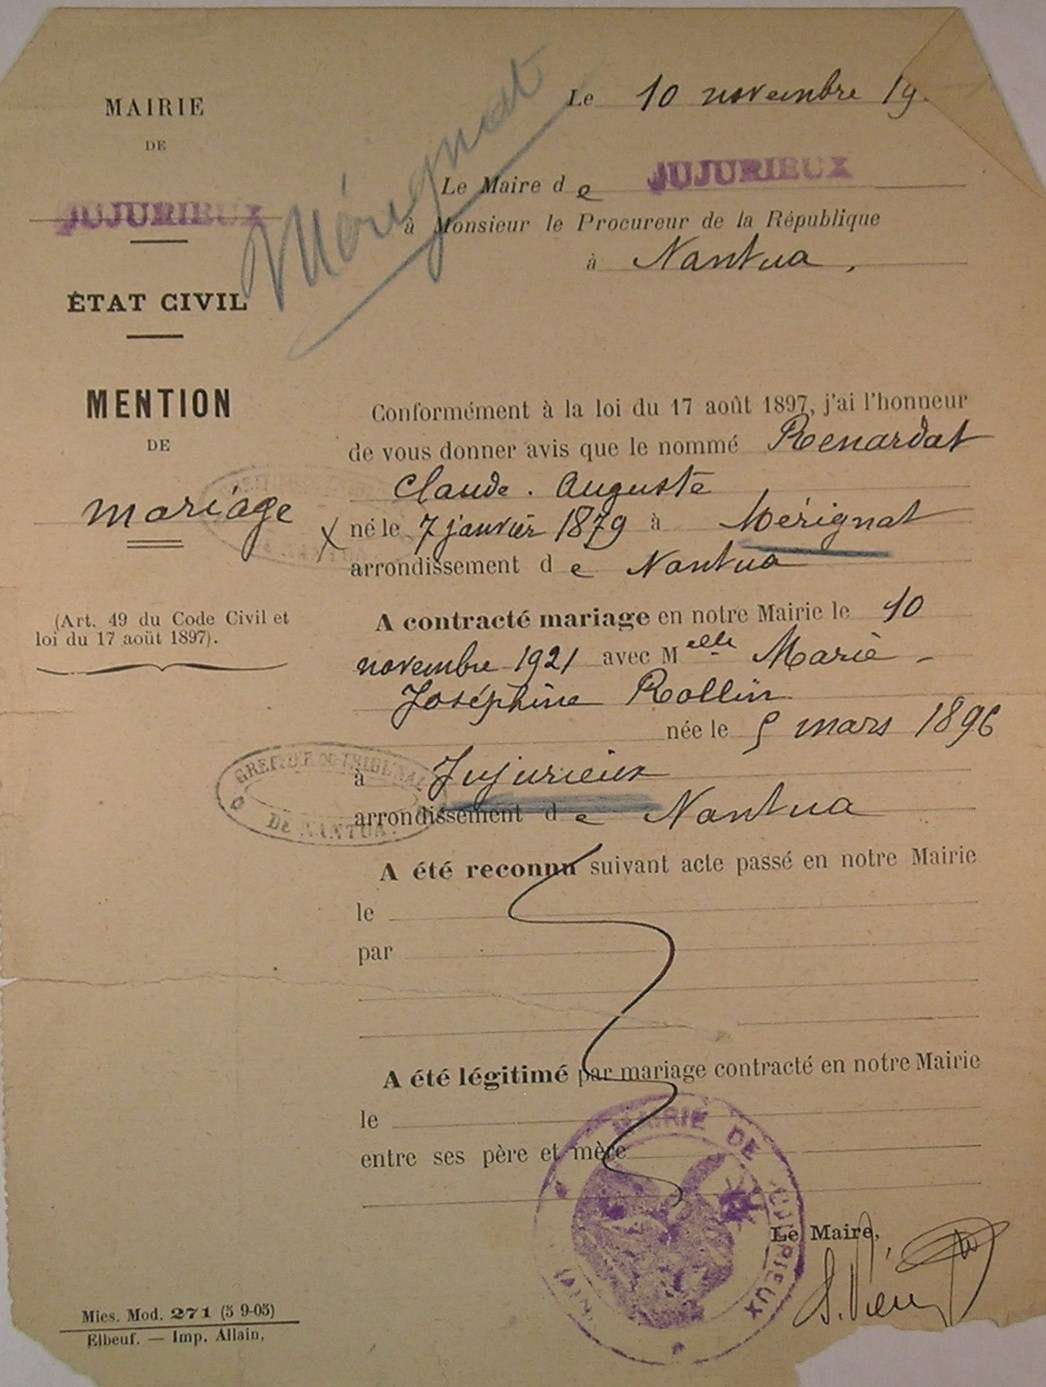 MAIRIE
DE
JUJURIEUX
ÉTAT CIVIL
MENTION
DE
mariage
(Art. 49 du Code Civil et
loi du 17 août 1897).
Mérignat
Le 10 novembre 19
Le Maire de JUJURIEUX
à Monsieur le Procureur de la République
à Nantua,
Conformément à la loi du 17 août 1897, j'ai l'honneur
de vous donner avis que le nommé Renardat
Claude. Auguste
X né le 7 janvier 1879 à Mérignat
arrondissement de Nantua
A contracté mariage en notre Mairie le 10
novembre 1921 avec Melle Marie
Joséphine Rollin
née le 5 mars 1896
à Jujurieux
arrondissement de Nantua
GREFFE DU TRIBUNAL
DE NANTUA
A été reconnu suivant acte passé en notre Mairie
le
par
A été légitimé par mariage contracté en notre Mairie
le
entre ses père et mère
MAIRIE DE JUJURIEUX
(AIN)
Le Maire,
Mies. Mod. 271 (5 9-05)
Elbeuf. — Imp. Allain.